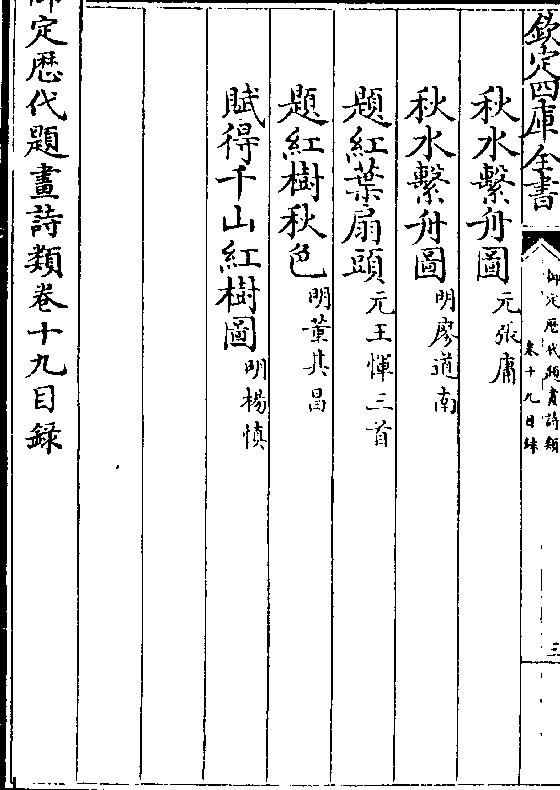 欽定四庫全書
御定歴代題畫詩類
卷十九目録
三
秋水繫舟圖 元張庸
秋水繫舟圖 明廖道南
題紅葉扇頭 元王惲三首
題紅樹秋色 明董其昌
賦得千山紅樹圖 明楊慎
御定歴代題畫詩類卷十九目録